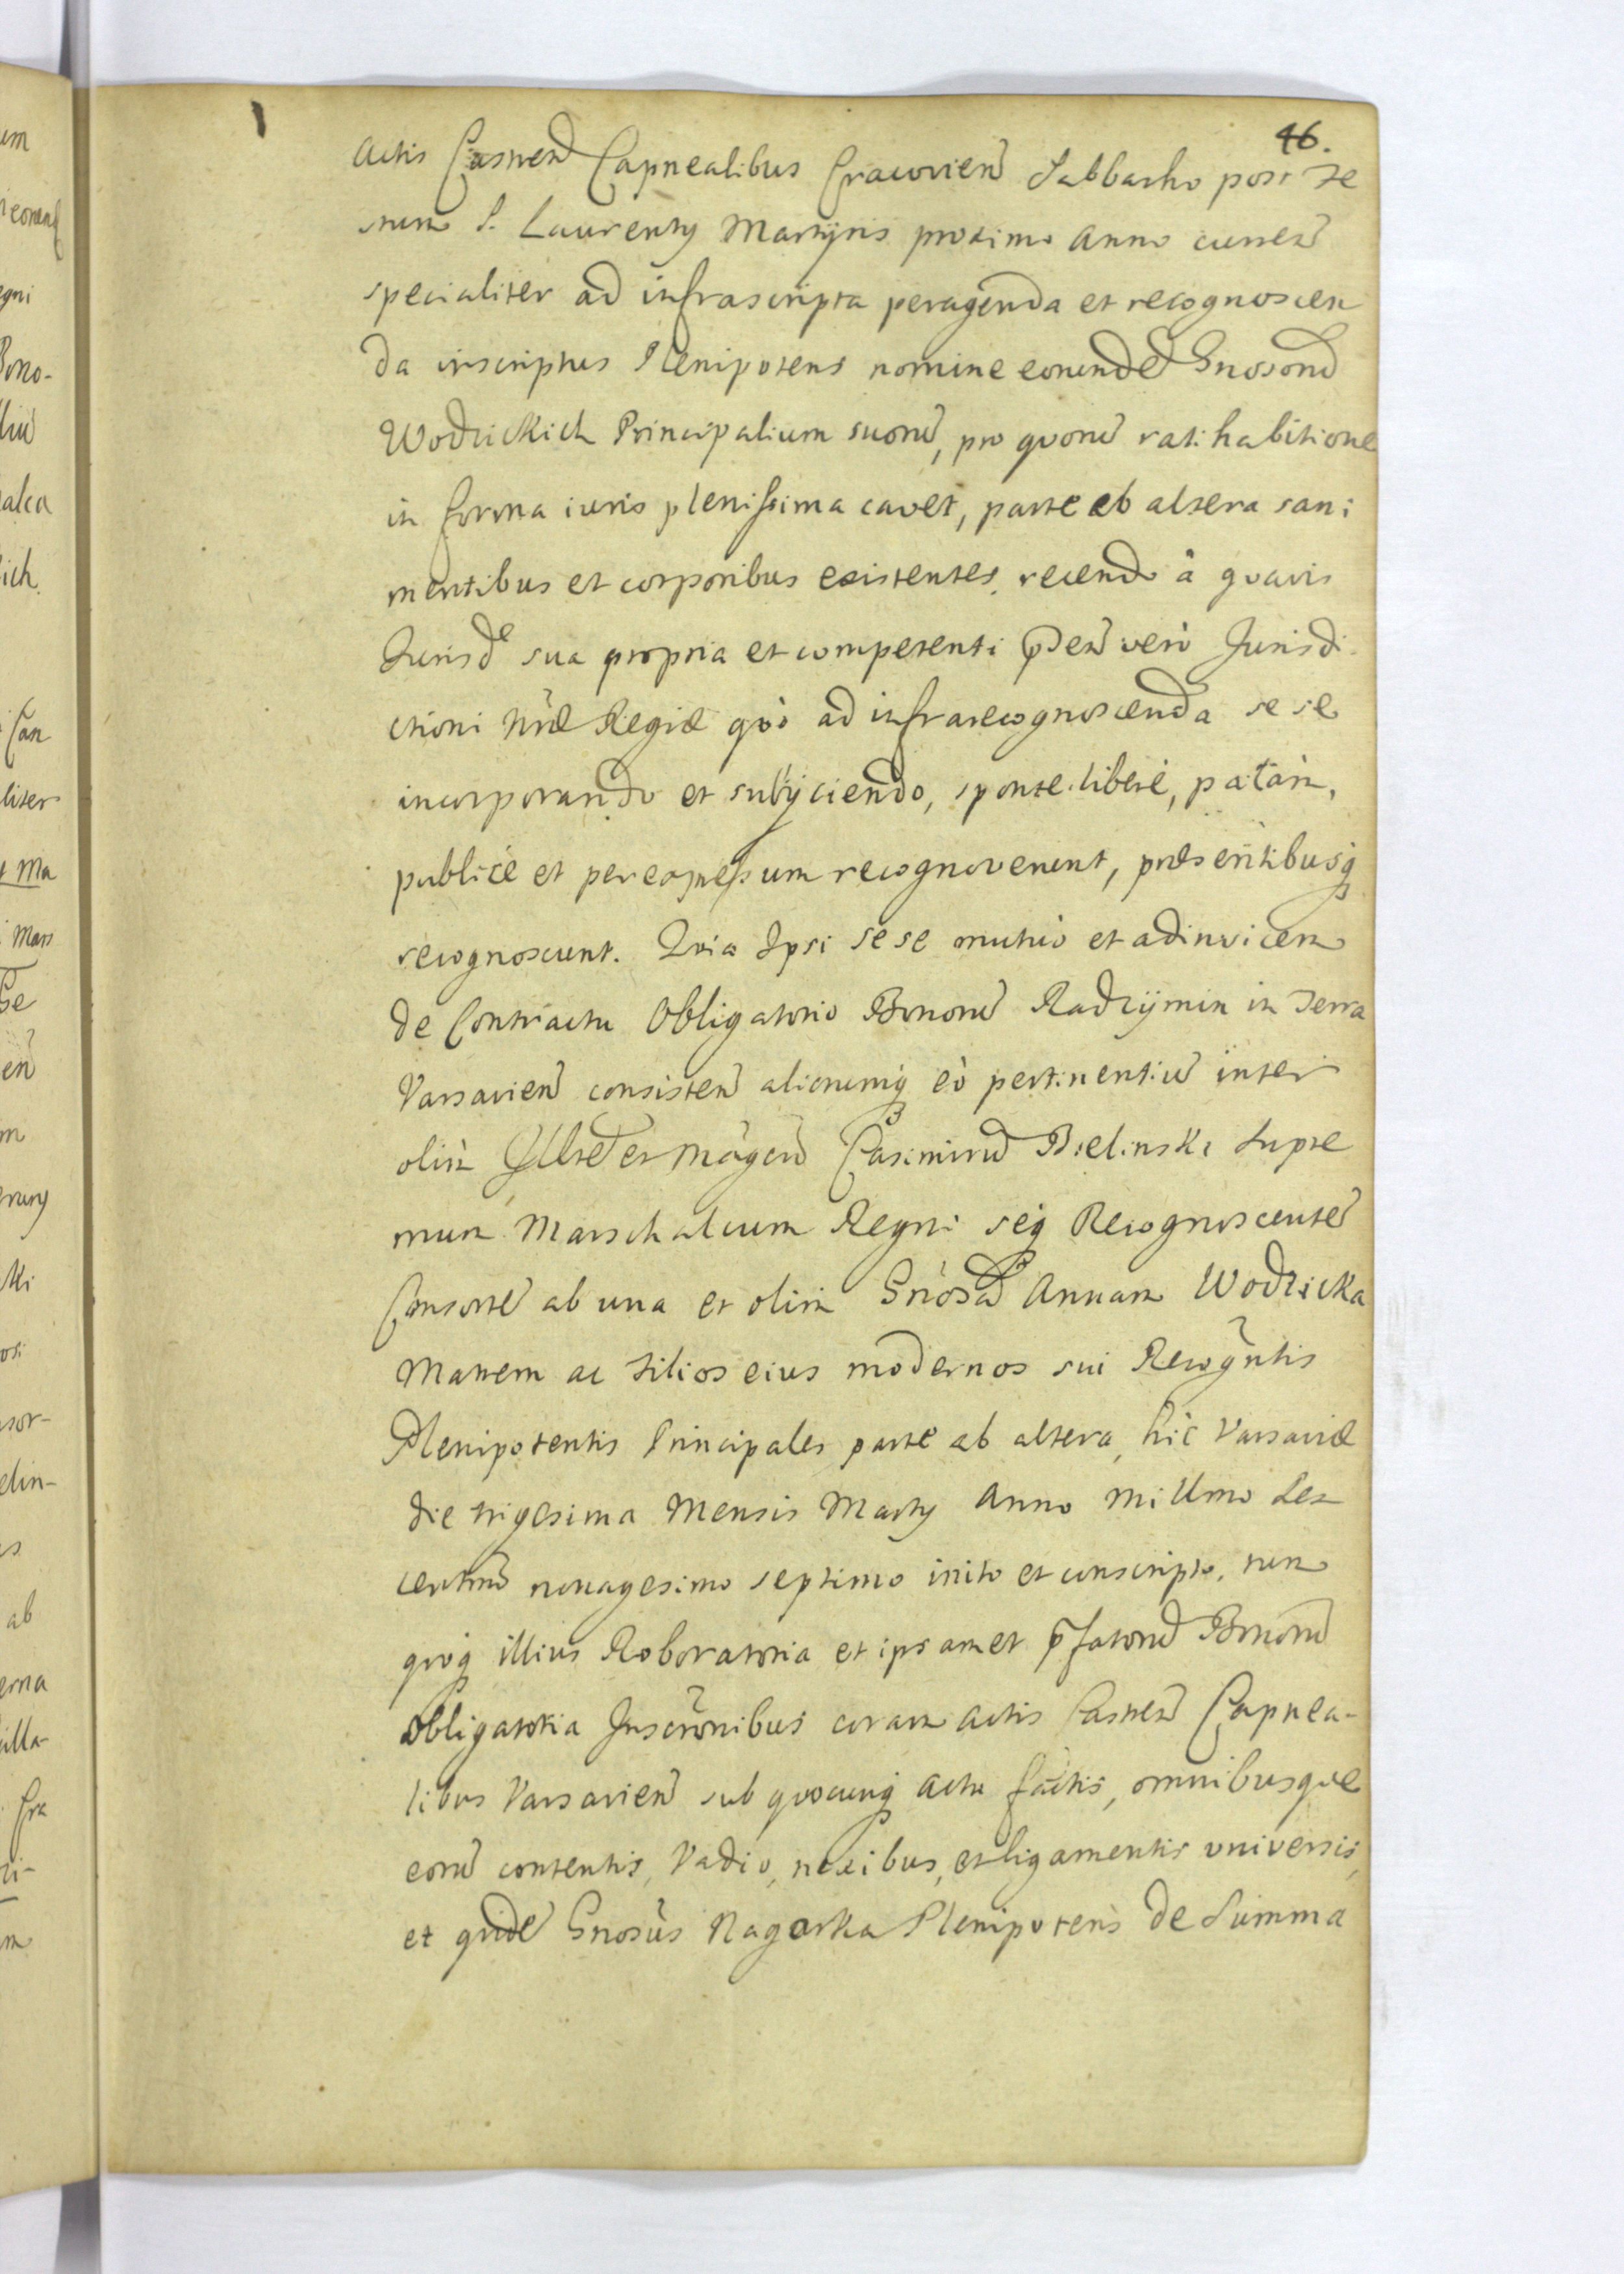 46.
Actis Castren Capnealibus Cracovien Sabbatho post Fe
stum S. Laurentÿ Martÿris proximo Anno curren
specialiter ad infrascripta peragenda et recognoscen
da inscriptus Plenipotens nomine eorunde Gnosorũ
Wodzickich Principalium suorũ, pro quorũ ratihabitione
in forma iuris plenissima cavet, parte ab altera sani
mentibus et corporibus existentes, recendo â quavis
Jurisde sua propria et competenti p̃nten verò Jurisdi
ctioni Nræ Regiæ quò ad infrarecognoscenda sese
incorporando et subÿciendo, sponte liberè, palàm,
publicè et per expressum recognoverunt, præsentibusq
recognoscunt. Quia Ipsi sese mutuò et adinvicem
de Contractu Obligatorio Bonorũ Radzÿmin in Terra
Varsavien consisten aliorumq eò pertinentiũ inter
olim Illrẽ et Mãgcũ Casimirũ Bielinski Supre
mum Marschalcum Regni seq Recognoscentẽ
Consortẽ ab una et olim Gnosã Annam Wodzicka
Matrem ac Filios eius modernos sui Recogñtis
Plenipotentis Principales parte ab altera, hic Varsaviæ
die trigesima Mensis Martÿ Anno Millmo Sex
centmo nonagesimo septimo inito et conscripto, nun
quoq illius Roboratoria et ipsamet p̃fatorũ Bonorũ
obligatoria Inscrõnibus coram Actis Castren Capnea-
libus Varsavien sub quocunq Actu factis, omnibusque
eorũ contentis, Vadio, nexibus, et ligamentis universis,
et quidẽ Gnosus Nagorka Plenipotens de Summa